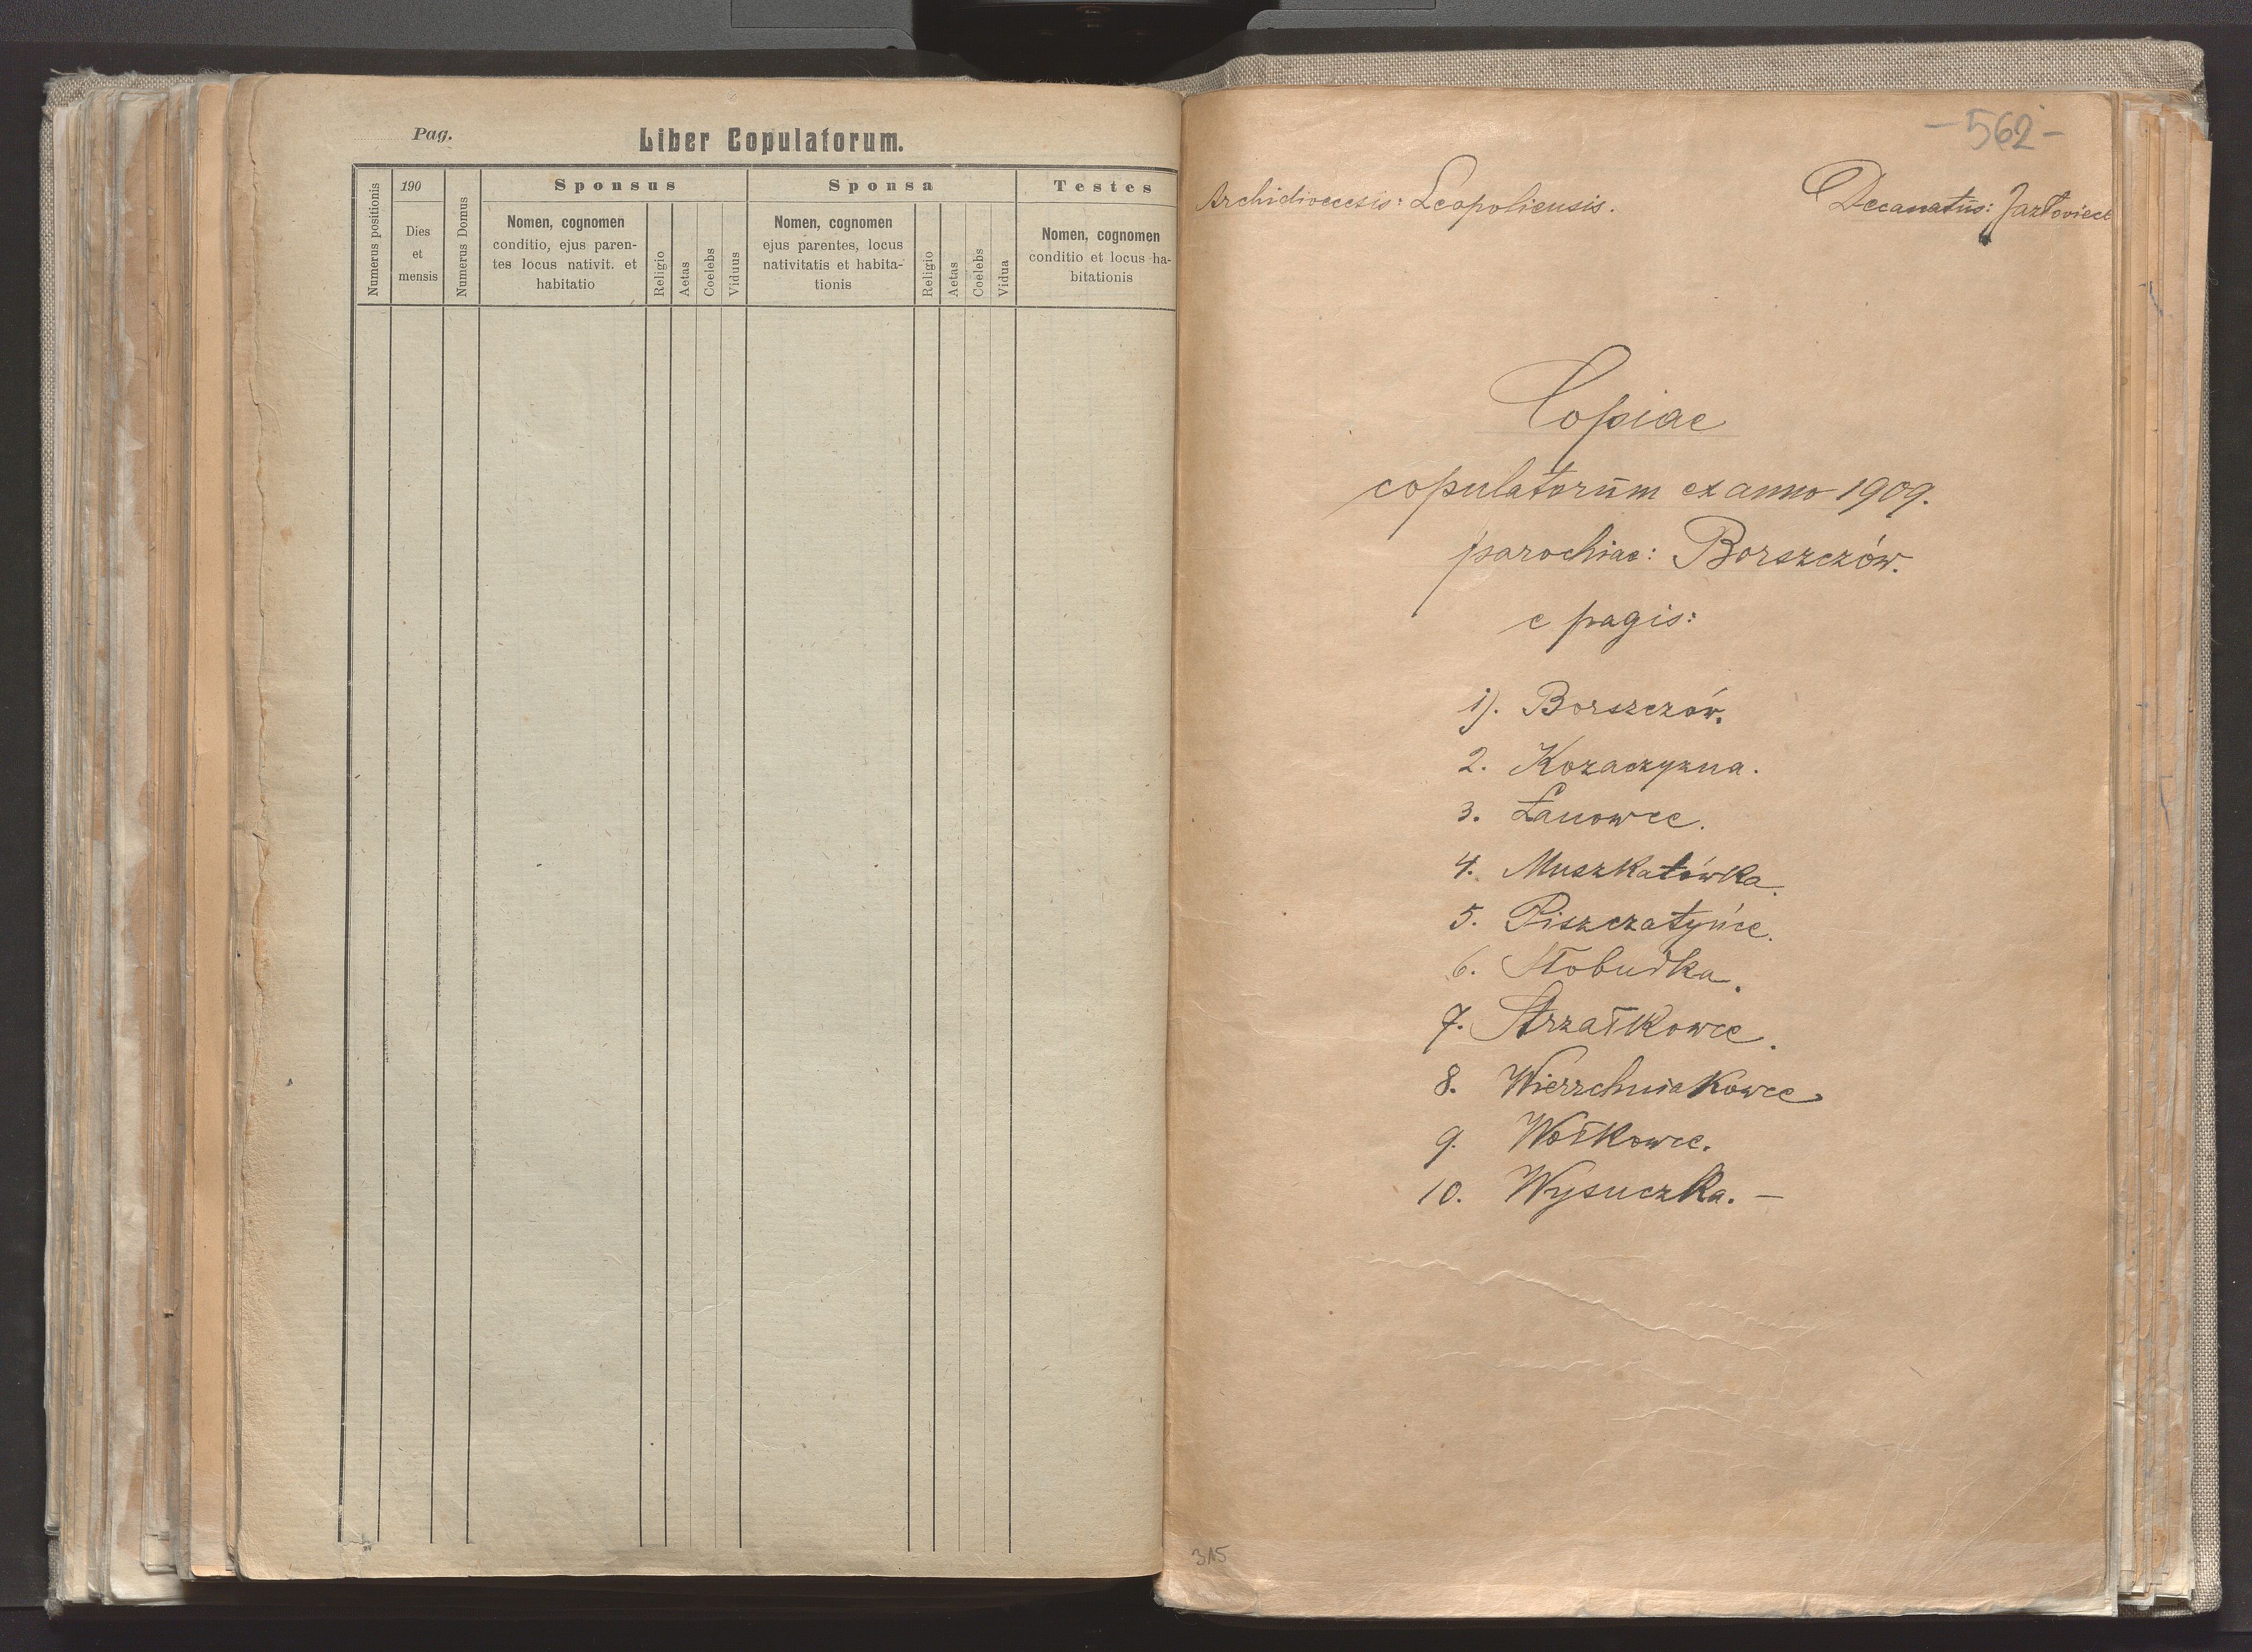 Pag.
Liber Copulatorum.
Numerus positionis
190
Dies
et
mensis
Numerus Domus
Sponsus
Nomen, cognomen
conditio, ejus paren-
tes locus nativit. et
habitatio
Religio
Aetas
Coelebs
Viduus
Sponsa
Nomen, cognomen
ejus parentes, locus
nativitatis et habita-
tionis
Religio
Aetas
Coelebs
Vidua
Testes
Nomen, cognomen
conditio et locus ha-
bitationis
- 562 -
Archidioecesis: Leopoliensis.
Decanatus: Jazłoviec
Copiae
copulatorum ex anno 1909.
parochiae: Borszczów.
e pagis:
1). Borszczów.
2. Kozaczyzna.
3. Łanowce.
4. Muszkatówka.
5. Piszczatyńce.
6. Słobudka.
7. Strzałkowce.
8. Wierzchniakowce
9. Wołkowce.
10. Wysuczka. -
315